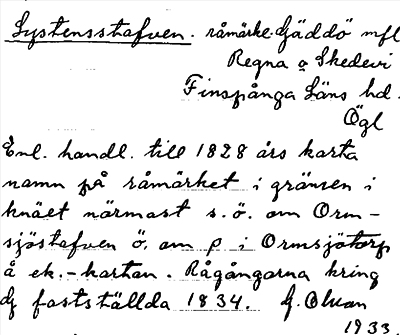 Systensstafven. råmärke. Gäddö mfl
Regna o Skedevi
Finspånga Läns hd.
Ögl
Enl. handl. till 1828 års karta
namn på råmärket i gränsen i
knäet närmast s.ö. om Orm-
sjöstafven ö. om p i Ormsjötorp
å ek.-kartan. Rågångarna kring
Gj fastställda 1834. G. Olson
1933.